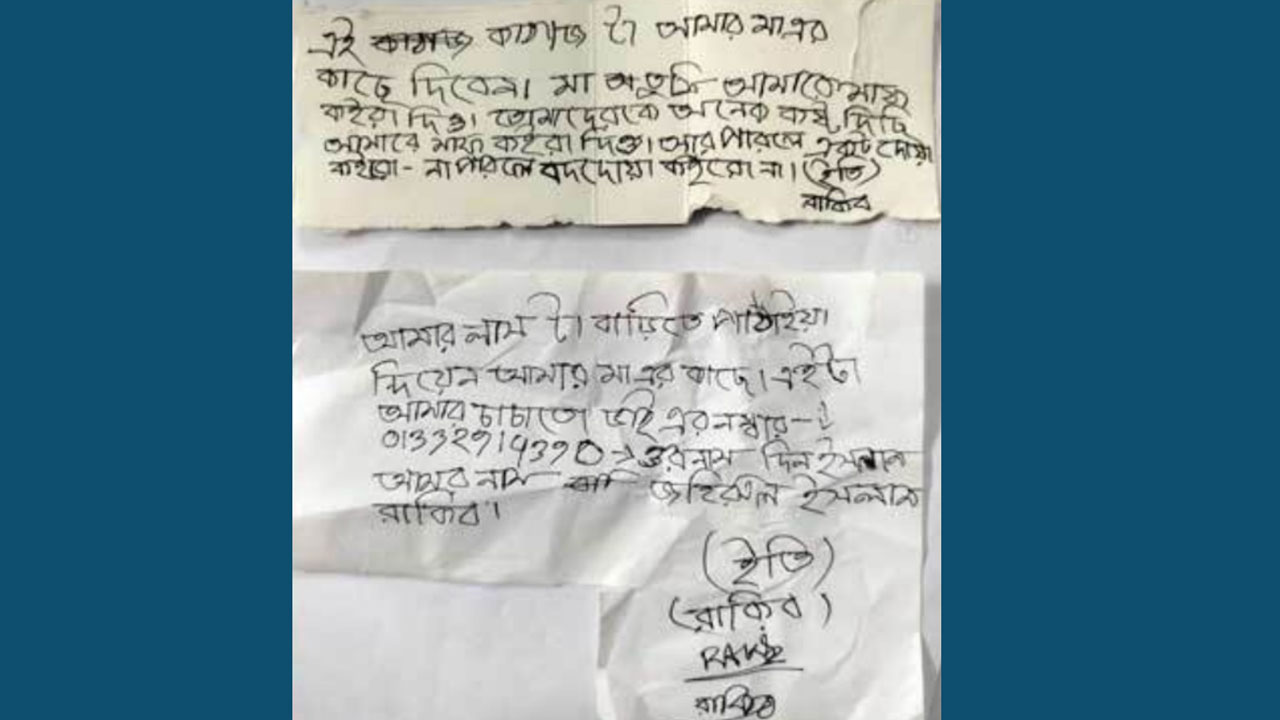 এই কাগজ কাগজ টা আমার মাএর
কাছে দিবেন। মা তুমি আমাকে মাফ
কইরা দিও। তোমাদেরকে অনেক কষ্ট দিছি
আমারে মাফ কইরা দিও। আর পারলে একটা দোয়া
কইরো - না পারলে বদদোয়া কইরো না। (ইতি)
রাকিব
আমার লাস টা বাড়িতে পাঠাইয়া
দিয়েন আমার মাএর কাছে। এইটা
আমার চাচাতো ভাই এর নম্বার-
→ ওর নাম দিন ইসলাম
আমার নাম জহিরুল ইসলাম
রাকিব।
(ইতি)
(রাকিব)
রাকিব